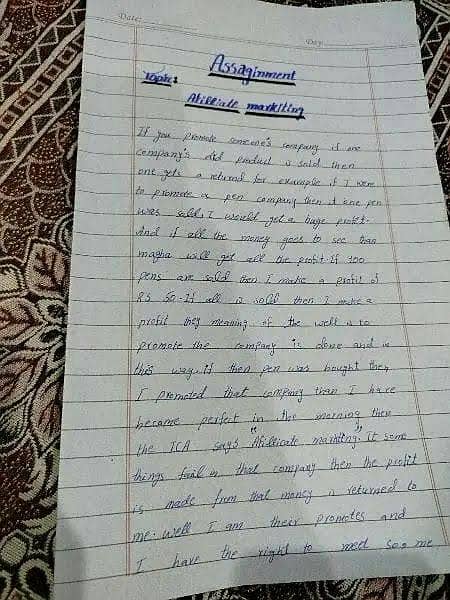 Date:
Day:
Assaginment
Topic:
Afilliate markiting
If you promote someone's company if one
company's did product is sold then
one gets a returnd for example if I were
to promote a pen company then if one pen
was sold, I would get a huge profit.
And if all the money goes to see than
magha will get all the profit. If 100
pens are sold then I make a profit of
RS 50. If all is sold then I make a
profit they meaning of the well is to
promote the company is done and in
this way. If then pen was bought they
I promoted that company than I have
became perfect in the morning then
the ICA says "Afillicate markting". It some
things fail in that company then the profit
is made from that money is returned to
me. well I am their promotes and
I have the right to meet some